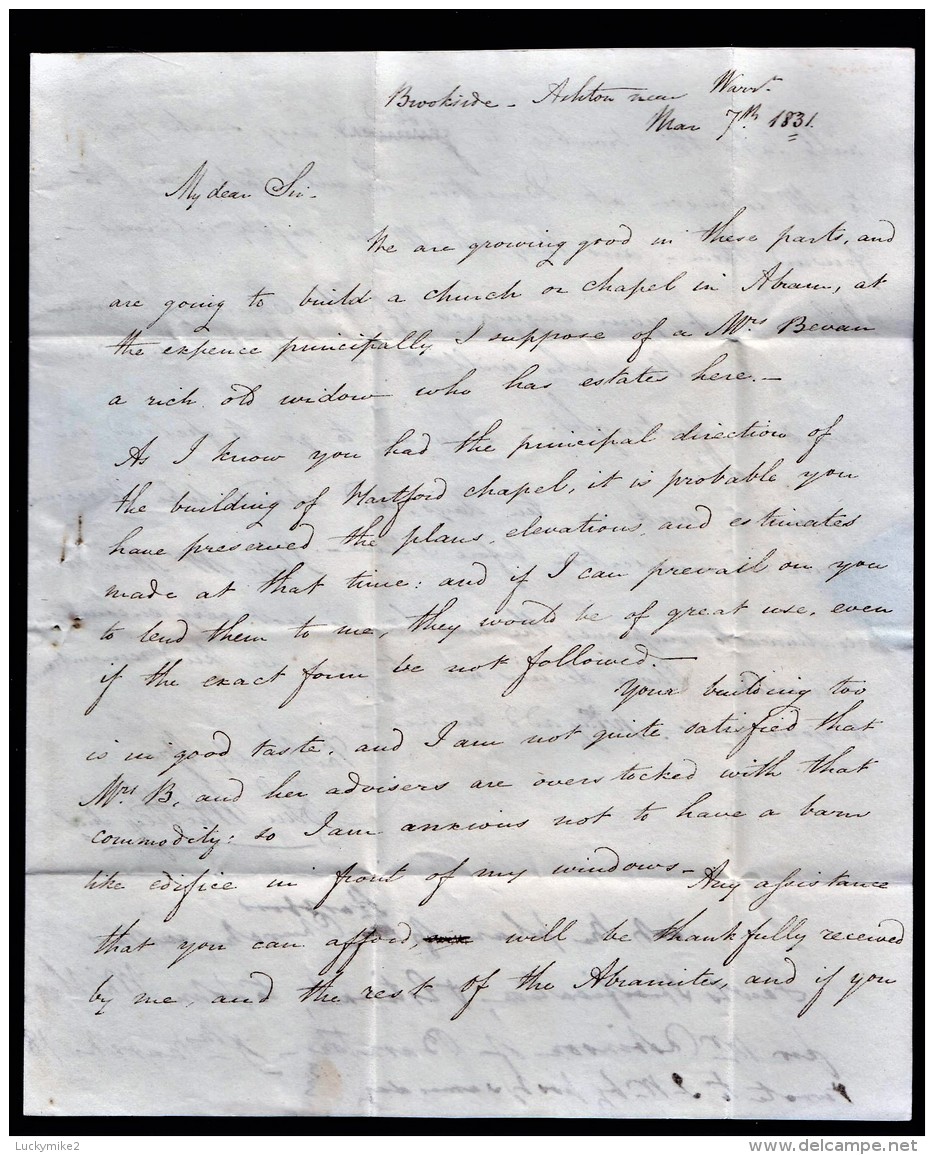 Brookside - Ashton near Warrn.
Mar 7th. 1831.
My dear Sir -
We are growing good in these parts, and
are going to build a church or chapel in Abram, at
the expence principally I suppose of a Mrs Bevan
a rich old widow who has estates here. -
As I know you had the principal direction of
the building of Hartford chapel, it is probable you
have preserved the plans, elevations and estimates
made at that time: and if I can prevail on you
to lend them to me, they would be of great use, even
if the exact form be not followed. -
Your building too
is in good taste, and I am not quite satisfied that
Mrs. B, and her advisers are overstocked with that
commodity: so I am anxious not to have a barn
like edifice in front of my windows -
Any assistance
that you can afford, will be thankfully received
by me, and the rest of the Abramites, and if you
Luckymike2
www.delcampe.net